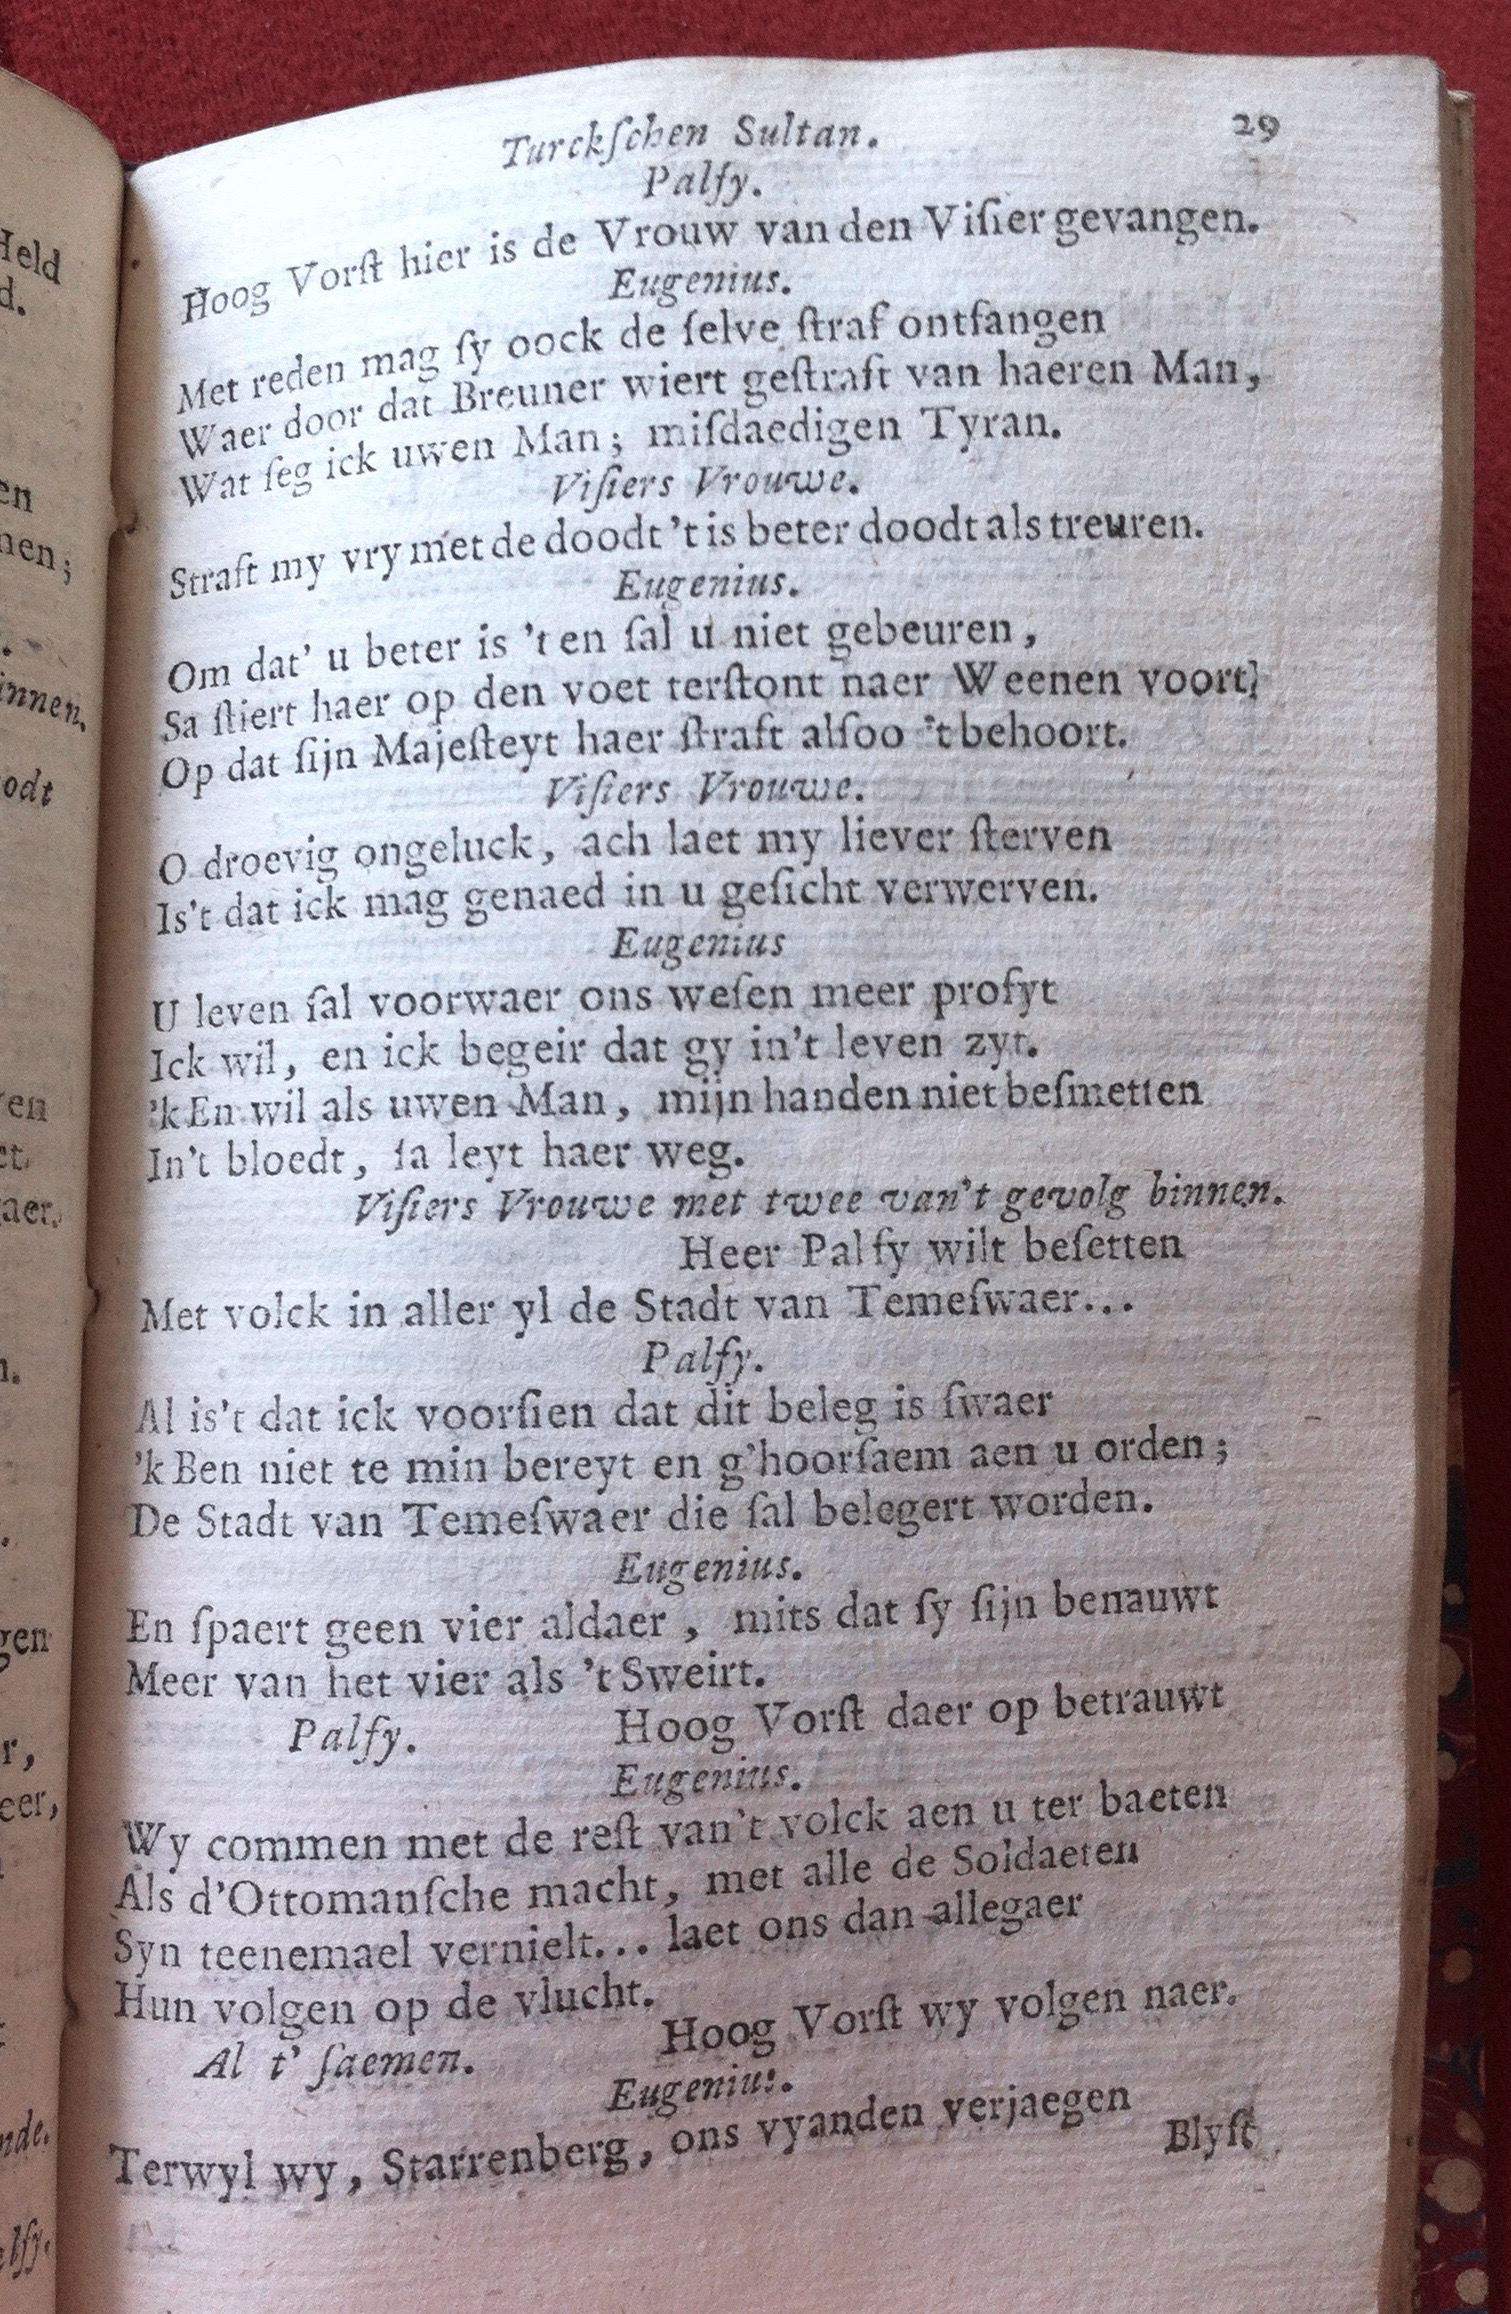 Held
d.
en
nen;
innen.
odt
en
aer.
gen
r,
eer,
nde.
Turckſchen Sultan. 29
Palfy.
Hoog Vorſt hier is de Vrouw van den Viſier gevangen.
Eugenius.
Met reden mag ſy oock de ſelve ſtraf ontfangen
Waer door dat Breuner wiert geſtraft van haeren Man,
Wat ſeg ick uwen Man; miſdaedigen Tyran.
Viſiers Vrouwe.
Straft my vry met de doodt 't is beter doodt als treuren.
Eugenius.
Om dat' u beter is 't en ſal u niet gebeuren,
Sa ſtiert haer op den voet terſtont naer Weenen voort,
Op dat ſijn Majeſteyt haer ſtraft alſoo 't behoort.
Viſiers Vrouwe.
O droevig ongeluck, ach laet my liever ſterven
Is't dat ick mag genaed in u geſicht verwerven.
Eugenius
U leven ſal voorwaer ons weſen meer profyt
Ick wil, en ick begeir dat gy in't leven zyt.
'k En wil als uwen Man, mijn handen niet beſmetten
In't bloedt, ſa leyt haer weg.
Viſiers Vrouwe met twee van't gevolg binnen.
Heer Palfy wilt beſetten
Met volck in aller yl de Stadt van Temeſwaer...
Palfy.
Al is't dat ick voorſien dat dit beleg is ſwaer
'k Ben niet te min bereyt en g'hoorſaem aen u orden;
De Stadt van Temeſwaer die ſal belegert worden.
Eugenius.
En ſpaert geen vier aldaer, mits dat ſy ſijn benauwt
Meer van het vier als 't Sweirt.
Palfy. Hoog Vorſt daer op betrauwt
Eugenius.
Wy commen met de reſt van't volck aen u ter baeten
Als d'Ottomanſche macht, met alle de Soldaeten
Syn teenemael vernielt... laet ons dan allegaer
Hun volgen op de vlucht.
Al t' ſaemen. Hoog Vorſt wy volgen naer.
Eugenius.
Terwyl wy, Starrenberg, ons vyanden verjaegen
Blyft